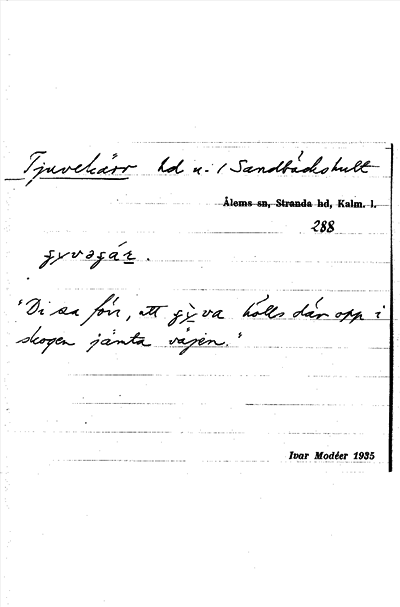 Tjuvekärr hd u. / Sandbäckshult
Ålems sn, Stranda hd, Kalm. l.
288
"Di sa förr, att va hölls där opp i
skogen jämta väjen."
Ivar Modéer 1935